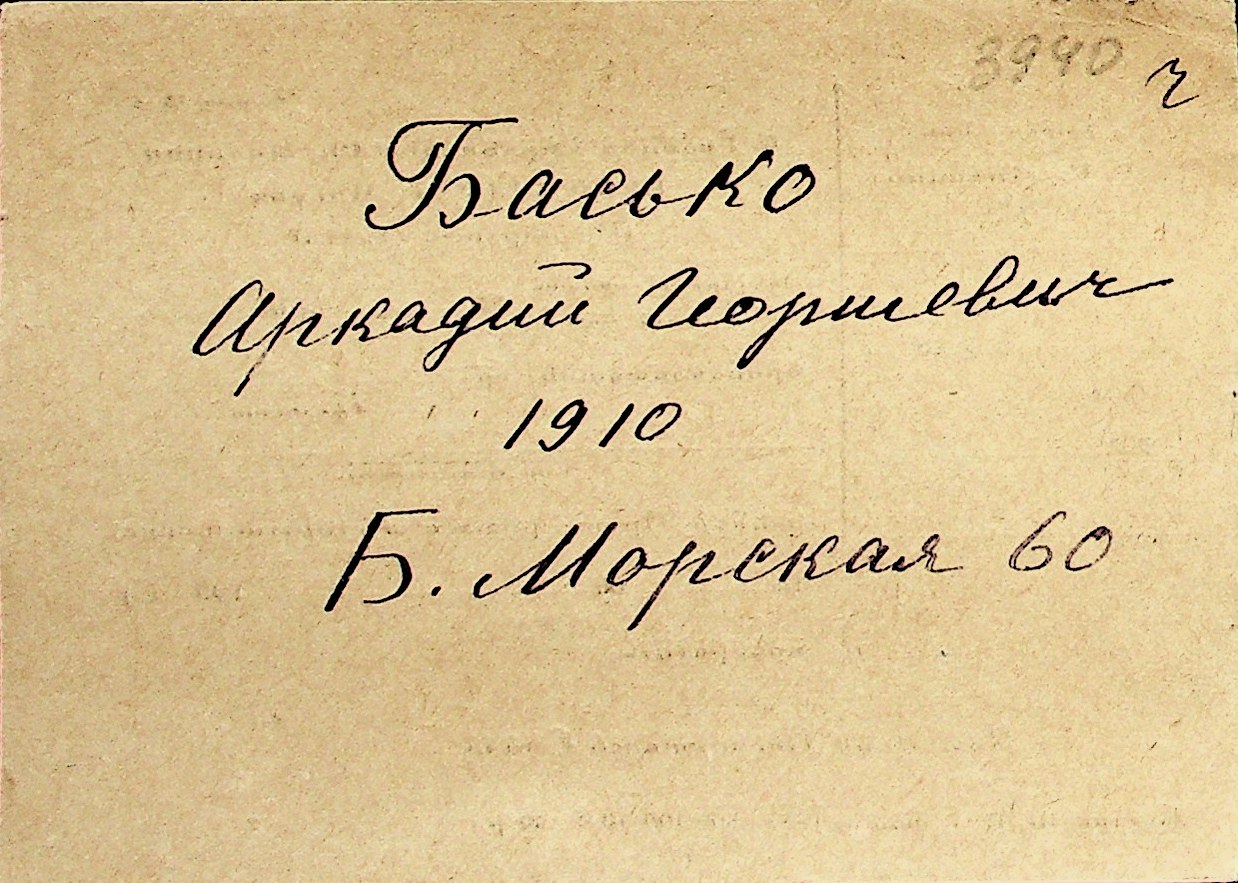 3940 ч
Басько
Аркадий Георгиевич
1910
Б. Морская 60